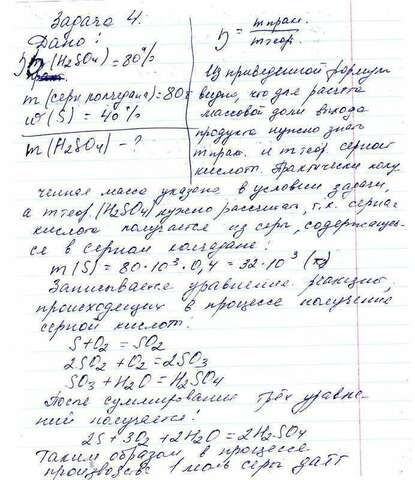 Задача 4.
Дано:
η (H₂SO₄) = 80%
η = m прак. / m теор.
m (серн. колчедана) = 80т
ω (S) = 40%
m (H₂SO₄) - ?
Из приведенной формулы
видно, что для расчета
массовой доли выхода
продукта нужно знать
m прак. и m теор. серной
кислоты. Практически полу-
ченная масса указана в условии задачи,
а m теор. (H₂SO₄) нужно рассчитать, т.к. серная
кислота получается из серы, содержащей-
ся в серном колчедане:
m (S) = 80 · 10³ · 0,4 = 32 · 10³
Записываем уравнение реакций,
происходящих в процессе получение
серной кислоты:
S + O₂ = SO₂
2SO₂ + O₂ = 2SO₃
SO₃ + H₂O = H₂SO₄
После суммирования трёх уравне-
ний получается:
2S + 3O₂ + 2H₂O = 2H₂SO₄
Таким образом, в процессе
производства 1 моль серы даёт